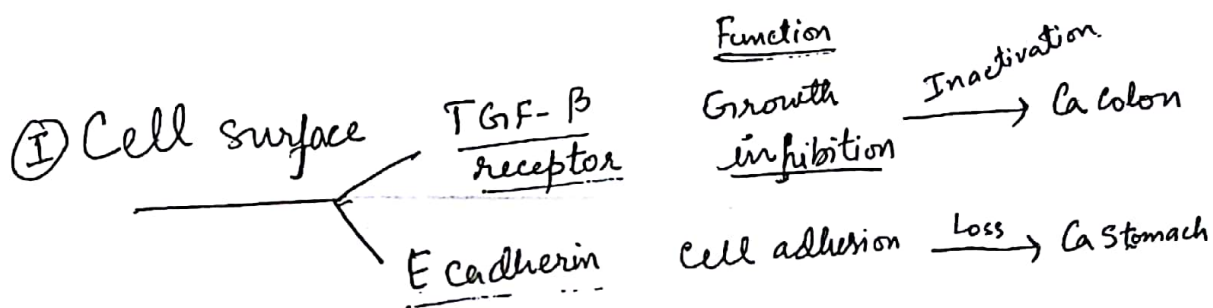 Function
Ⓘ Cell surface TGF-β receptor Growth inhibition Inactivation. Ca colon
E cadherin Cell adhesion Loss Ca Stomach